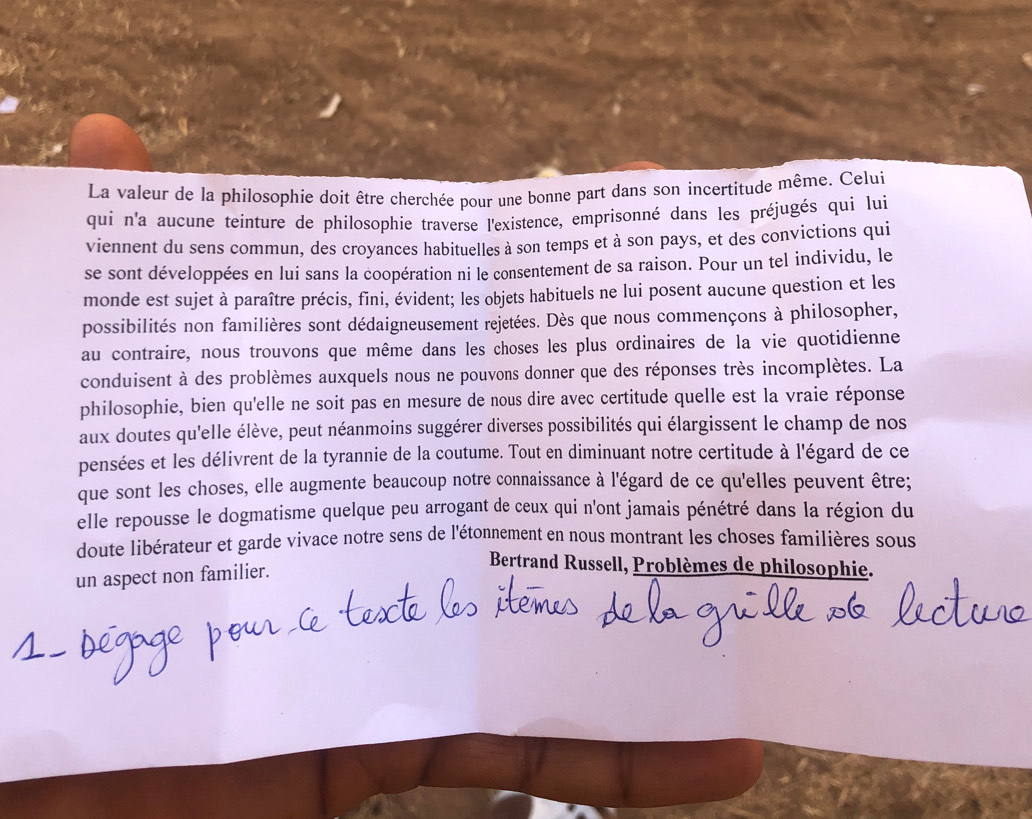 La valeur de la philosophie doit être cherchée pour une bonne part dans son incertitude même. Celui
qui n'a aucune teinture de philosophie traverse l'existence, emprisonné dans les préjugés qui lui
viennent du sens commun, des croyances habituelles à son temps et à son pays, et des convictions qui
se sont développées en lui sans la coopération ni le consentement de sa raison. Pour un tel individu, le
monde est sujet à paraître précis, fini, évident; les objets habituels ne lui posent aucune question et les
possibilités non familières sont dédaigneusement rejetées. Dès que nous commençons à philosopher,
au contraire, nous trouvons que même dans les choses les plus ordinaires de la vie quotidienne
conduisent à des problèmes auxquels nous ne pouvons donner que des réponses très incomplètes. La
philosophie, bien qu'elle ne soit pas en mesure de nous dire avec certitude quelle est la vraie réponse
aux doutes qu'elle élève, peut néanmoins suggérer diverses possibilités qui élargissent le champ de nos
pensées et les délivrent de la tyrannie de la coutume. Tout en diminuant notre certitude à l'égard de ce
que sont les choses, elle augmente beaucoup notre connaissance à l'égard de ce qu'elles peuvent être;
elle repousse le dogmatisme quelque peu arrogant de ceux qui n'ont jamais pénétré dans la région du
doute libérateur et garde vivace notre sens de l'étonnement en nous montrant les choses familières sous
un aspect non familier.
Bertrand Russell, Problèmes de philosophie.
1- Dégage pour ce texte les itèmes de la grille de lecture